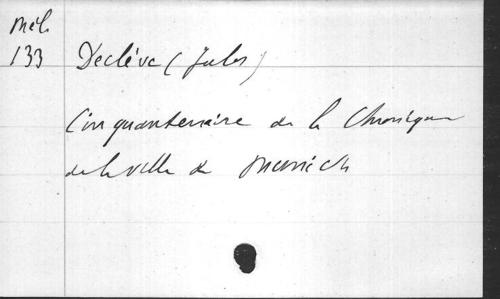 Mél.
133 Declève (Jules)
Cinquantenaire de la Chronique
de la ville de Munich